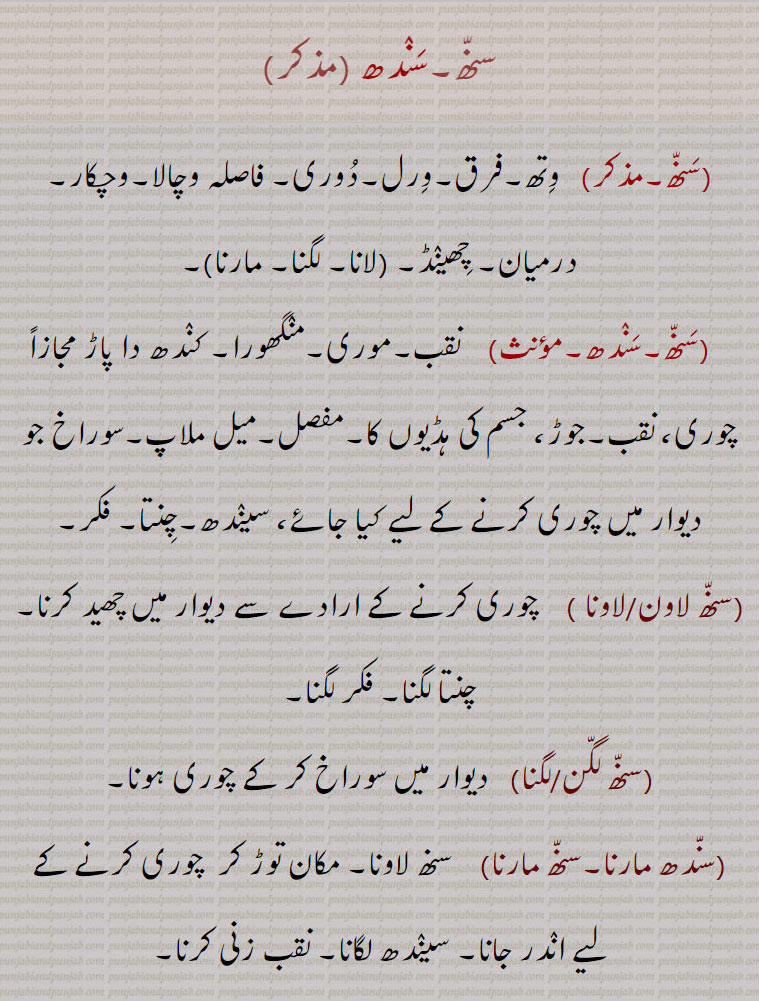 سنھّ۔سَنْدھ (مذکر)
(سَنھّ۔مذکر) وِتھ۔فرق۔وِرل۔دُوری۔ فاصلہ وچالا۔وچکار۔
درمیان۔ چِھینْڈ۔ (لانا۔ لگنا۔ مارنا)۔
(سَنھّ۔سَنْدھ۔مؤنث) نقب۔موری۔منْگھورا۔ کنْدھ دا پاڑ مجازاً
چوری،نقب۔جوڑ، جسم کی ہڈیوں کا۔مفصل۔میل ملاپ۔سوراخ جو
دیوار میں چوری کرنے کے لیے کیا جائے، سینْدھ۔چِنتا۔ فکر۔
(سنھّ لاون/لاونا ) چوری کرنے کے ارادے سے دیوار میں چھید کرنا۔
چنتا لگنا۔ فکر لگنا۔
(سنھّ لگّن/لگنا) دیوار میں سوراخ کر کے چوری ہونا۔
(سنّدھ مارنا۔سنھّ مارنا) سنھ لاونا۔ مکان توڑ کر چوری کرنے کے
لیے انْدر جانا۔ سینْدھ لگانا۔ نقب زنی کرنا۔